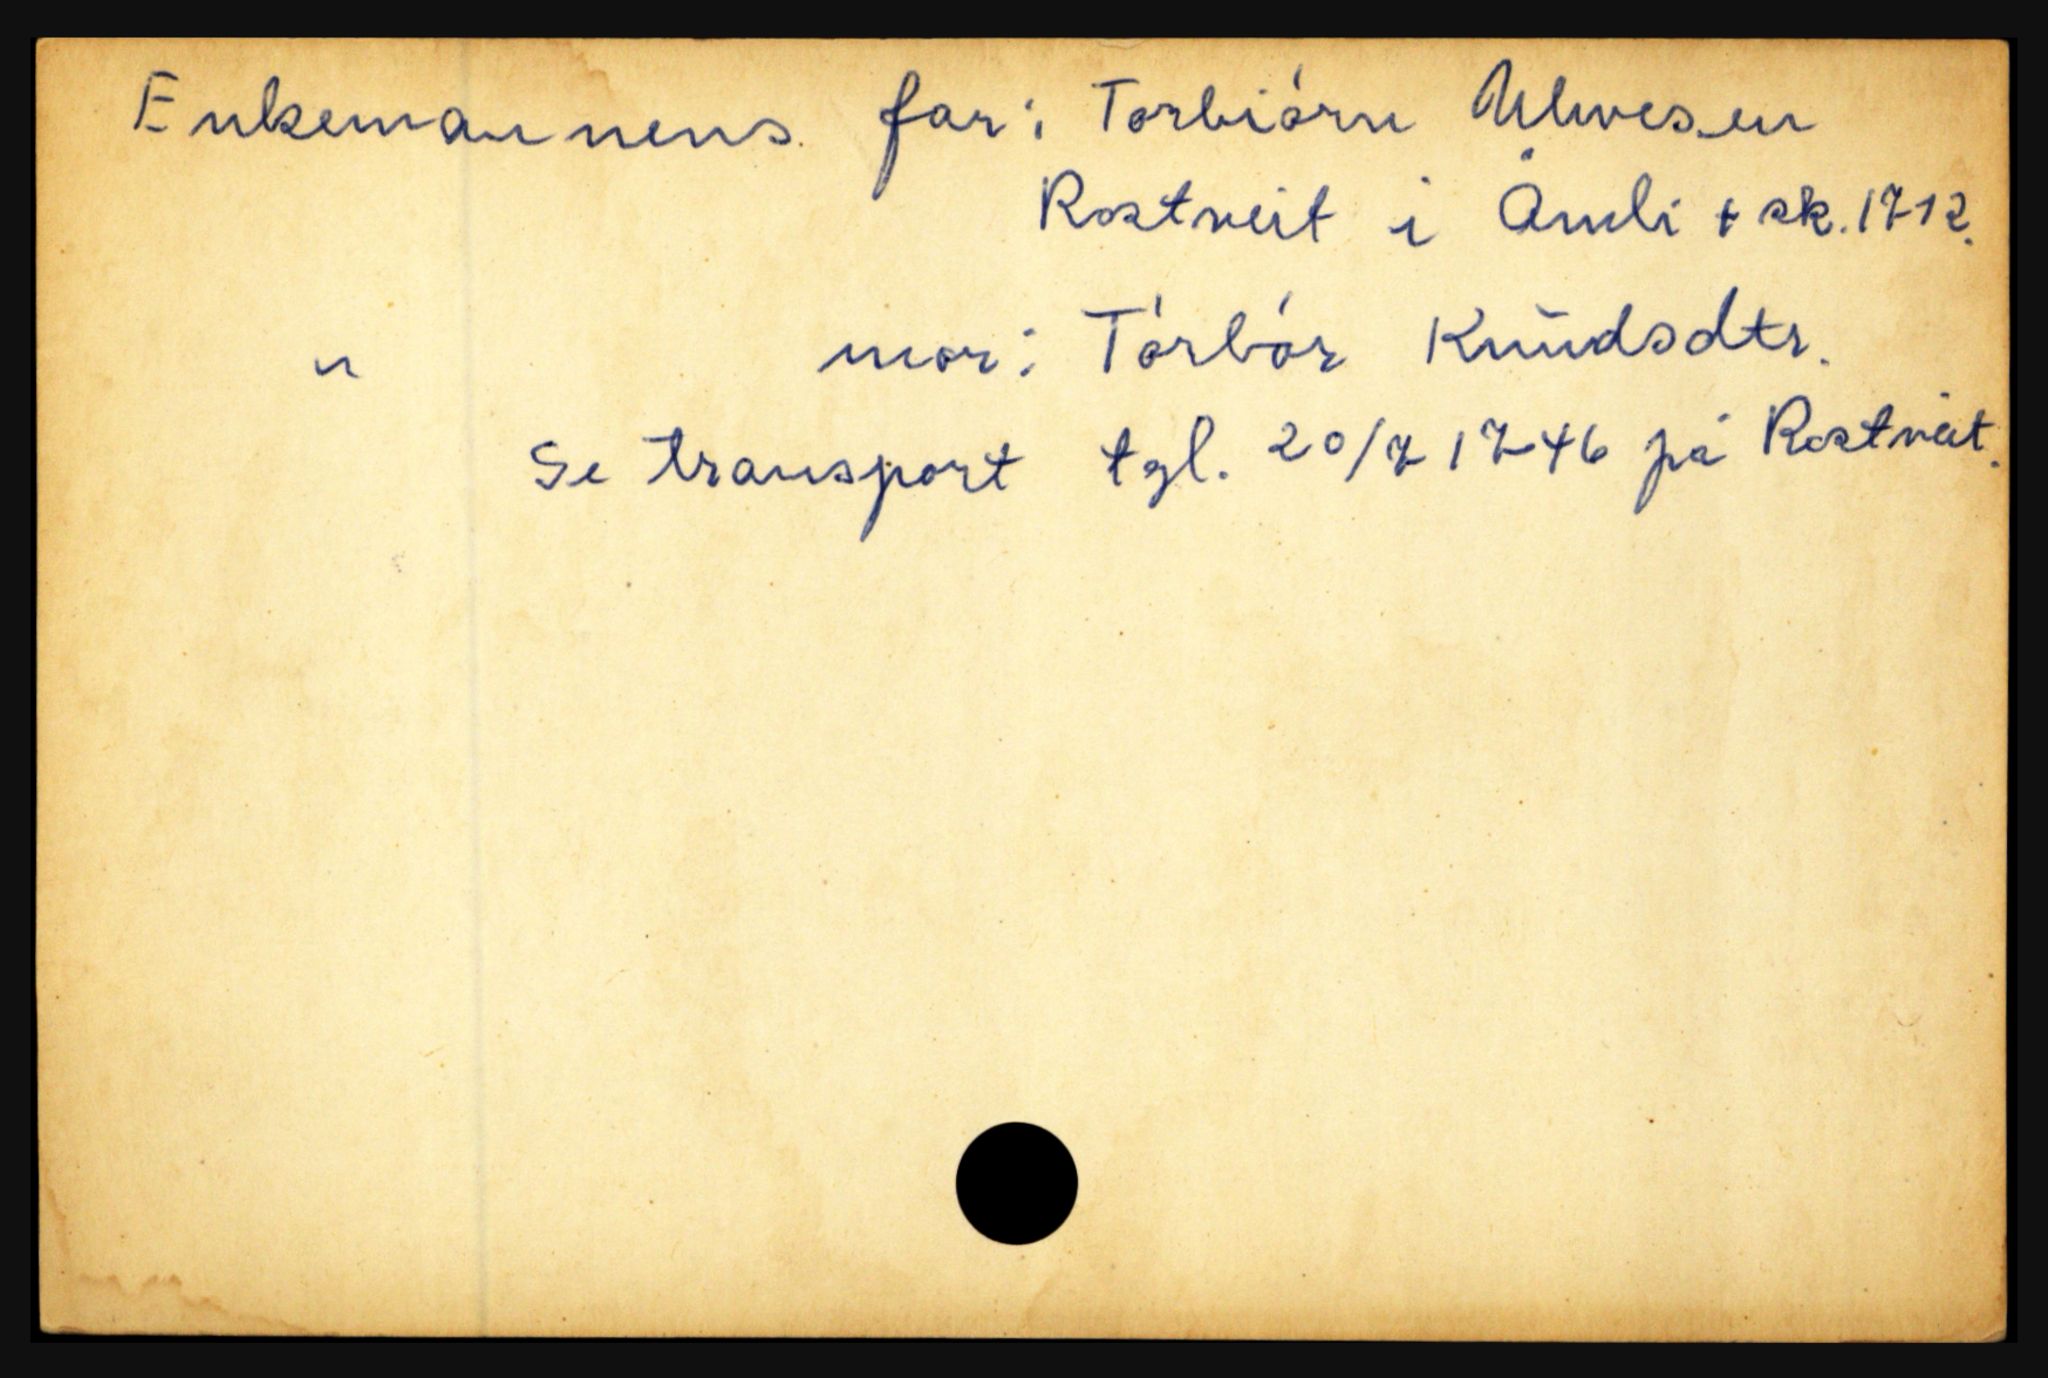 Enkemannens far: Torbiórn Ulvesen
Rostveit i Åmli + sk. 1712.
" mor: Tórbór Knŭdsdtr.
Se transport tgl. 20/7 1746 på Rostveit.